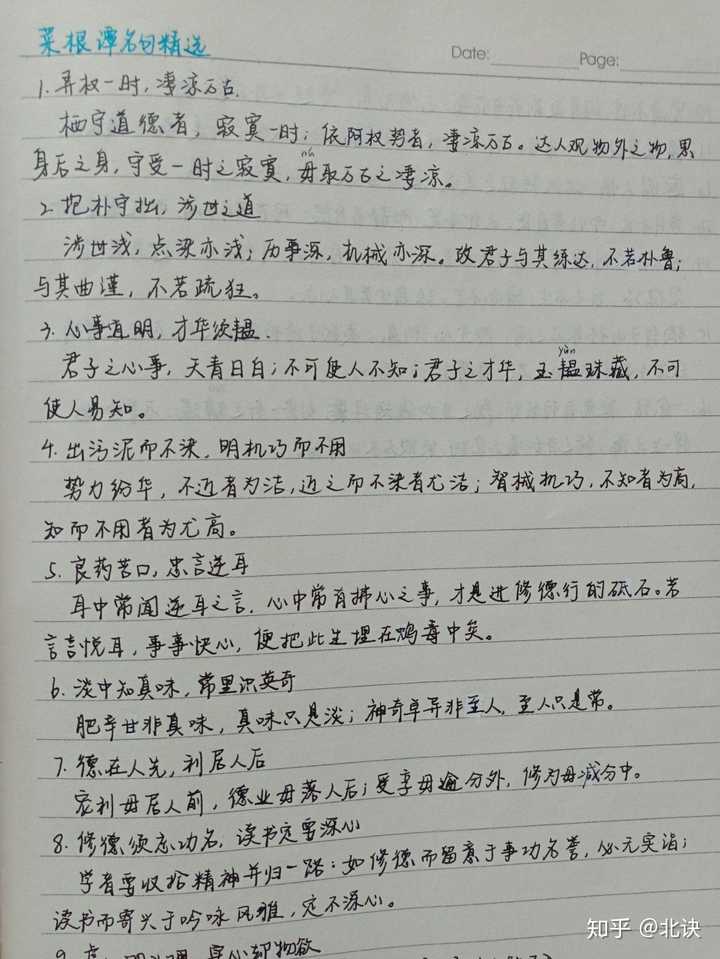 菜根谭名句精选
Date: Page:
1. 弄权一时,凄凉万古
栖守道德者,寂寞一时;依阿权势者,凄凉万古。达人观物外之物,思
身后之身,宁受一时之寂寞,毋取万古之凄凉。
2. 抱朴守拙,涉世之道
涉世浅,点染亦浅;历事深,机械亦深。故君子与其练达,不若朴鲁;
与其曲谨,不若疏狂。
3. 心事宜明,才华须韫
君子之心事,天青日白;不可使人不知;君子之才华,玉韫珠藏,不可
yùn
使人易知。
4. 出污泥而不染,明机巧而不用
势力纷华,不近者为洁,近之而不染者尤洁;智械机巧,不知者为高,
知而不用者为尤高。
5. 良药苦口,忠言逆耳
耳中常闻逆耳之言,心中常有拂心之事,才是进修德行的砥石。若
言言悦耳,事事快心,便把此生埋在鸩毒中矣。
6. 淡中知真味,常里识英奇
肥辛甘非真味,真味只是淡;神奇卓异非至人,至人只是常。
7. 德在人先,利居人后
宠利毋居人前,德业毋落人后;受享毋逾分外,修为毋减分中。
8. 修德须忘功名,读书定要深心
学者要收拾精神并归一路:如修德而留意于事功名誉,必无实诣;
读书而寄兴于吟咏风雅,定不深心。
知乎 @北诀